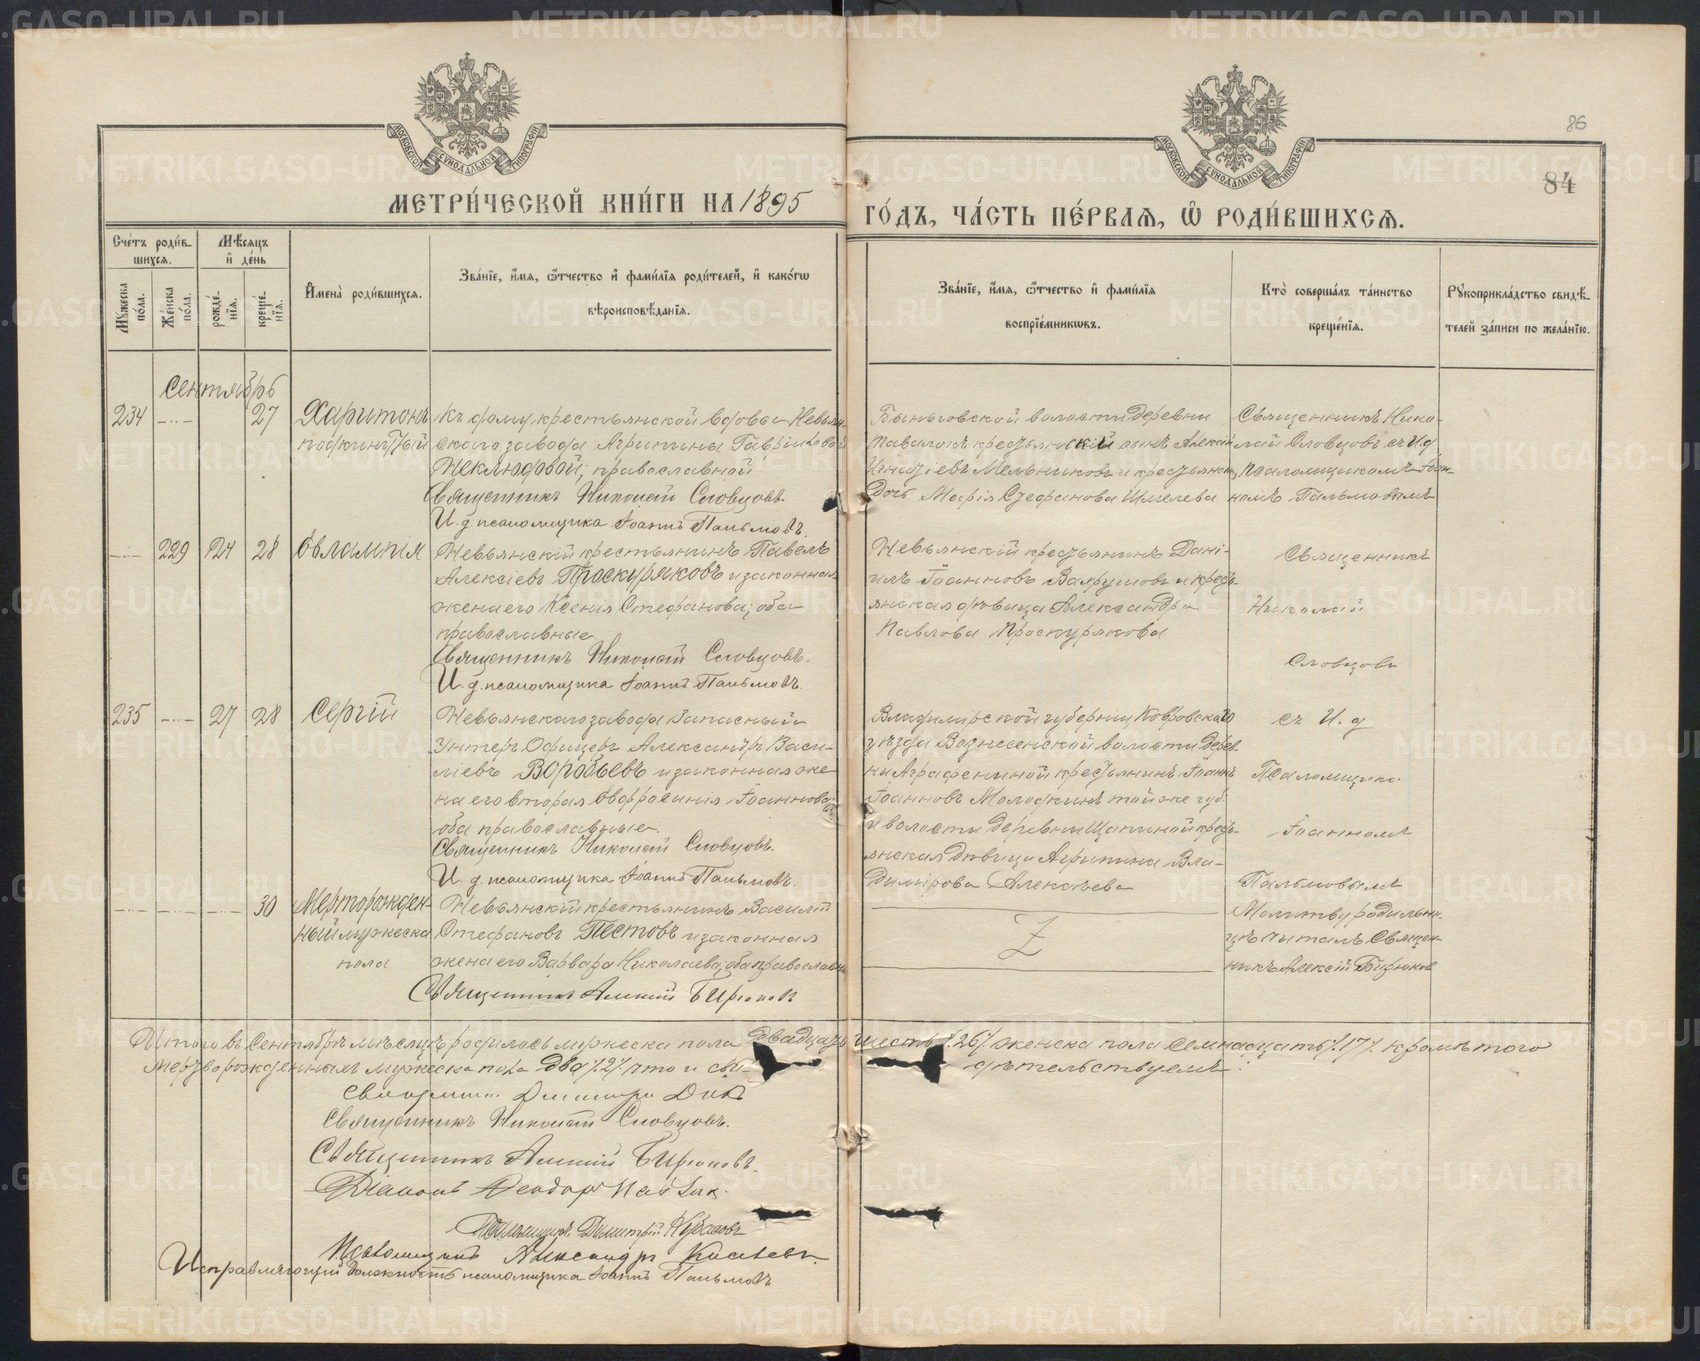 86
84
МОСКОВСКОЙ СѴНОДАЛЬНОЙ ТИПОГРАФІИ
МОСКОВСКОЙ СѴНОДАЛЬНОЙ ТИПОГРАФІИ
МЕТРИ́ЧЕСКОЙ КНИ́ГИ НА 1895
ГО́ДЪ, ЧА́СТЬ ПЕ́РВАЯ, Ѡ РОДИ́ВШИХСЯ.
Сче́тъ роди́в-
шихся.
Мѣ́сяцъ
и де́нь
Мꙋ́жеска по́ла.
Же́нска по́ла.
рожде́-нїѧ.
креще́-нїѧ.
И҆мена̀ роди́вшихсѧ.
Зва́нїе, и҆́мѧ, ѻ҆́тчество и҆ фами́лїѧ роди́телей, и҆ како́гѡ
вѣроисповѣ́данїѧ.
Зва́нїе, и҆́мѧ, ѻ҆́тчество и҆ фами́лїѧ
воспрїе́мникѡвъ.
Кто̀ соверша́лъ та́инство
креще́нїѧ.
Рꙋкоприкла́дство свидѣ́-
телей за́писи по жела́нїю.
Сентябрь
234 -"- 27 Харитонъ
подкинутый
Къ дому крестьянской вдовы Невьян-
скаго завода Агрипины Гавриловой
Неклюдовой, православной
Священникъ Николай Словцовъ.
И. д. псаломщика Іоаннъ Пальмовъ.
Быньговской волости деревни
крестьянскій сынъ Алексій
Игнатіевъ Мельниковъ и крестьянск.
дочь Марія Стефанова Шмелева
Священникъ Нико-
лай Словцовъ съ И. д.
Псаломщикомъ Іоан-
номъ Пальмовымъ
-"- 229 24 28 Евлампія
Невьянскій крестьянинъ Павелъ
Алексіевъ Проскуряковъ и законная
жена его Ксенія Стефанова, оба
православные
Священникъ Николай Словцовъ.
И. д. псаломщика Іоаннъ Пальмовъ.
Невьянскій крестьянинъ Дані-
илъ Іоанновъ и кресть-
янская дѣвица Александра
Павлова Проскурякова
Священникъ
Николай
Словцовъ
235 -"- 27 28 Сергій
Невьянскаго завода Запасный
Унтеръ Офицеръ Александръ Васи-
ліевъ Воробьевъ и законная же-
на его вторая Евфросинія Іоаннова,
оба православные.
Священникъ Николай Словцовъ.
И. д. псаломщика Іоаннъ Пальмовъ
Владимірской губерніи Ковровскаго
уѣзда Вознесенской волости дерев-
ни Аграфениной крестьянинъ Іоаннъ
Іоанновъ Молодкинъ той же губ.
и волости деревни Щапиной кресть-
янская дѣвица Агрипина Вла-
димірова Алексѣева
съ И. д.
Псаломщика
Іоанномъ
Пальмовымъ
-"- -"- -"- 30 Мерторожден-
ный мужеска
пола
Невьянскій крестьянинъ Василій
Стефановъ Пестовъ и законная
жена его Варвара Николаева, оба православн.
Священникъ Алексій Бирюковъ
Z
Молитву родильни-
цѣ читалъ Священ-
никъ Алексій Бирюков
Итого въ Сентябрѣ мѣсяцѣ родилось мужеска пола двадцать шесть /26/ женска пола семнадцать /17/. Кромѣ того
мертворожденныхъ мужеска пола два /2/ что и сви-
дѣтельствуемъ:
Священникъ Николай Словцовъ.
Священникъ Алексій Бирюковъ.
Діаконъ Ѳеодоръ
Псаломщикъ Димитрій
Псаломщикъ Александръ
Исправляющій должность псаломщика Іоаннъ Пальмовъ
METRIKI.GASO-URAL.RU